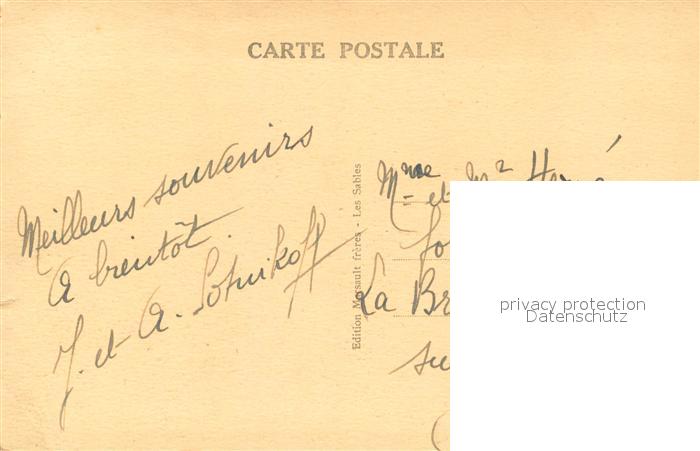 CARTE POSTALE
Meilleurs souvenirs
A bientôt.
J. et A. Lotnikoff
Edition Massault frères - Les Sables
Mme et Mr
La
privacy protection
Datenschutz